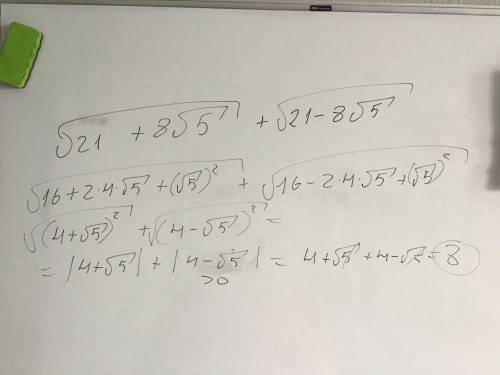 √(21 + 8√5) + √(21 - 8√5)
√(16 + 2·4·√5 + (√5)²) + √(16 - 2·4·√5 + (√5)²)
√((4+√5)²) + √((4-√5)²) =
= |4+√5| + |4-√5| = 4+√5 + 4-√5 = 8
>0